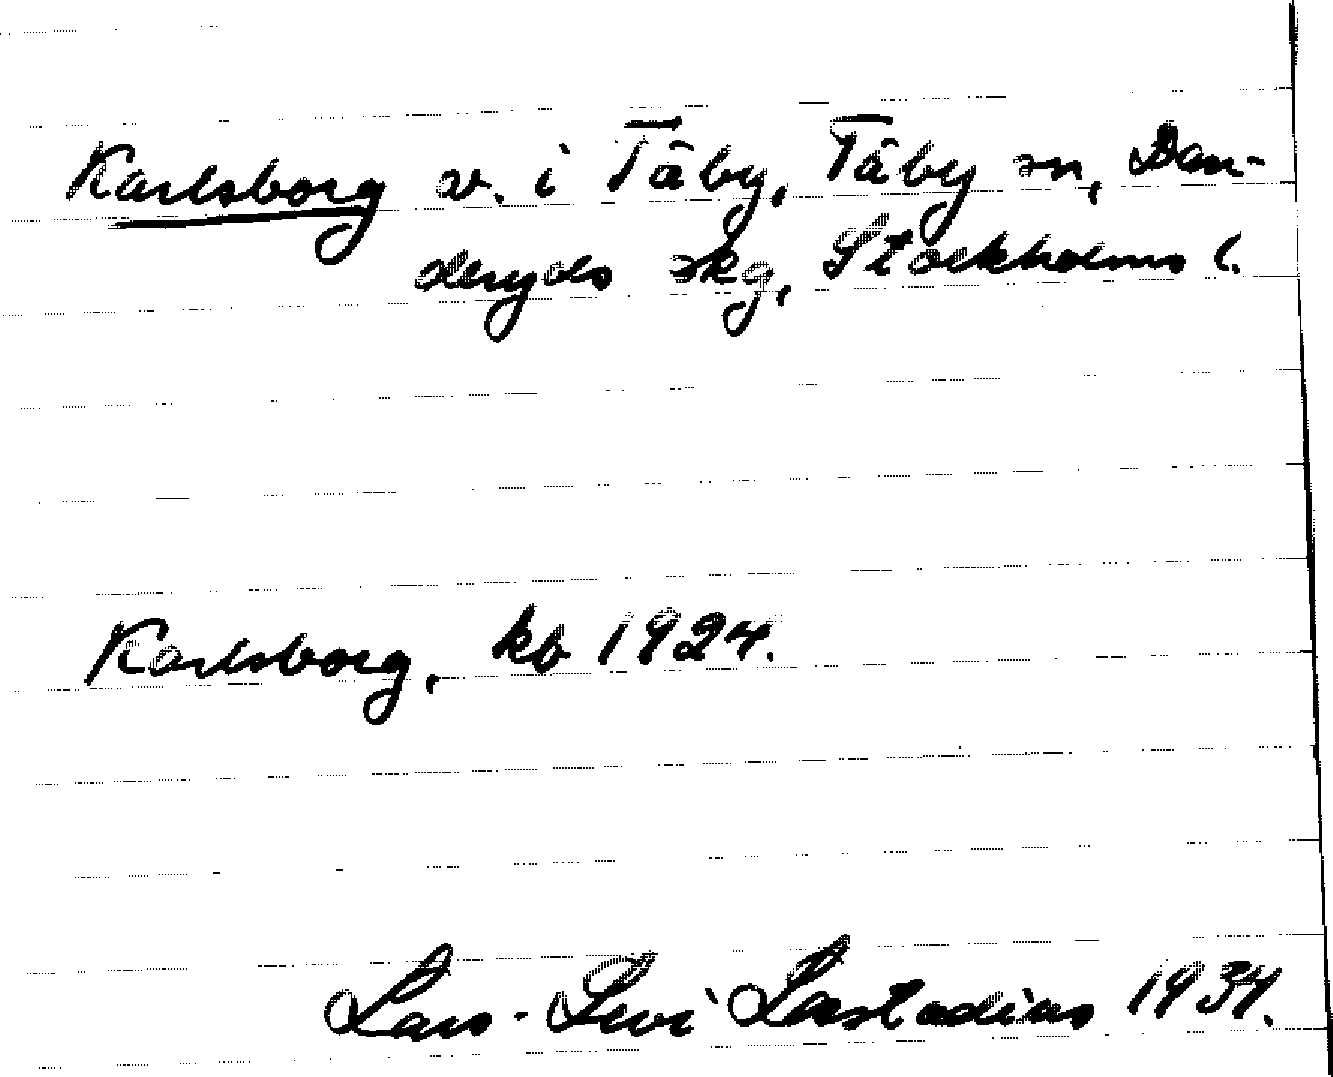 Karlsborg v. i Täby, Täby sn, Dan-
deryds skg, Stockholms l.
Karlsborg, kb 1924.
Lars-Levi Læstadius 1934.